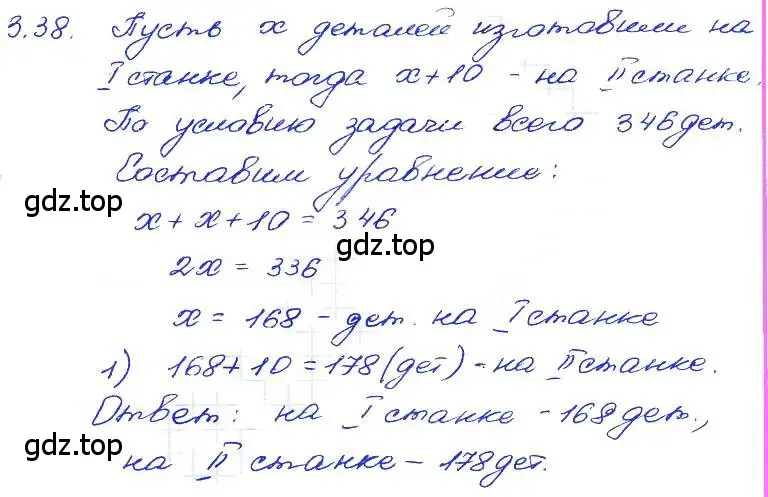 3.38. Пусть x деталей изготовили на
I станке, тогда x+10 - на II станке.
По условию задачи всего 346 дет.
Составим уравнение:
gdz.top
x + x + 10 = 346
gdz.top
2x = 336
x = 168 - дет. на I станке
1) 168 + 10 = 178 (дет) - на II станке.
Ответ: на I станке - 168 дет.,
gdz.top
на II станке - 178 дет.